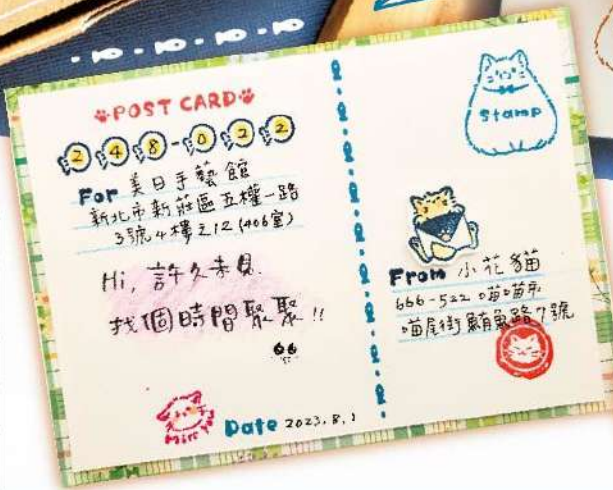 POST CARD
248-022
For 美日手藝館
新北市新莊區五權一路
3號4樓之12(406室)
Hi, 許久未見
找個時間聚聚!!
Date 2023.8.1
stamp
From 小花貓
666-522 喵喵市
喵尾街鮪魚路7號